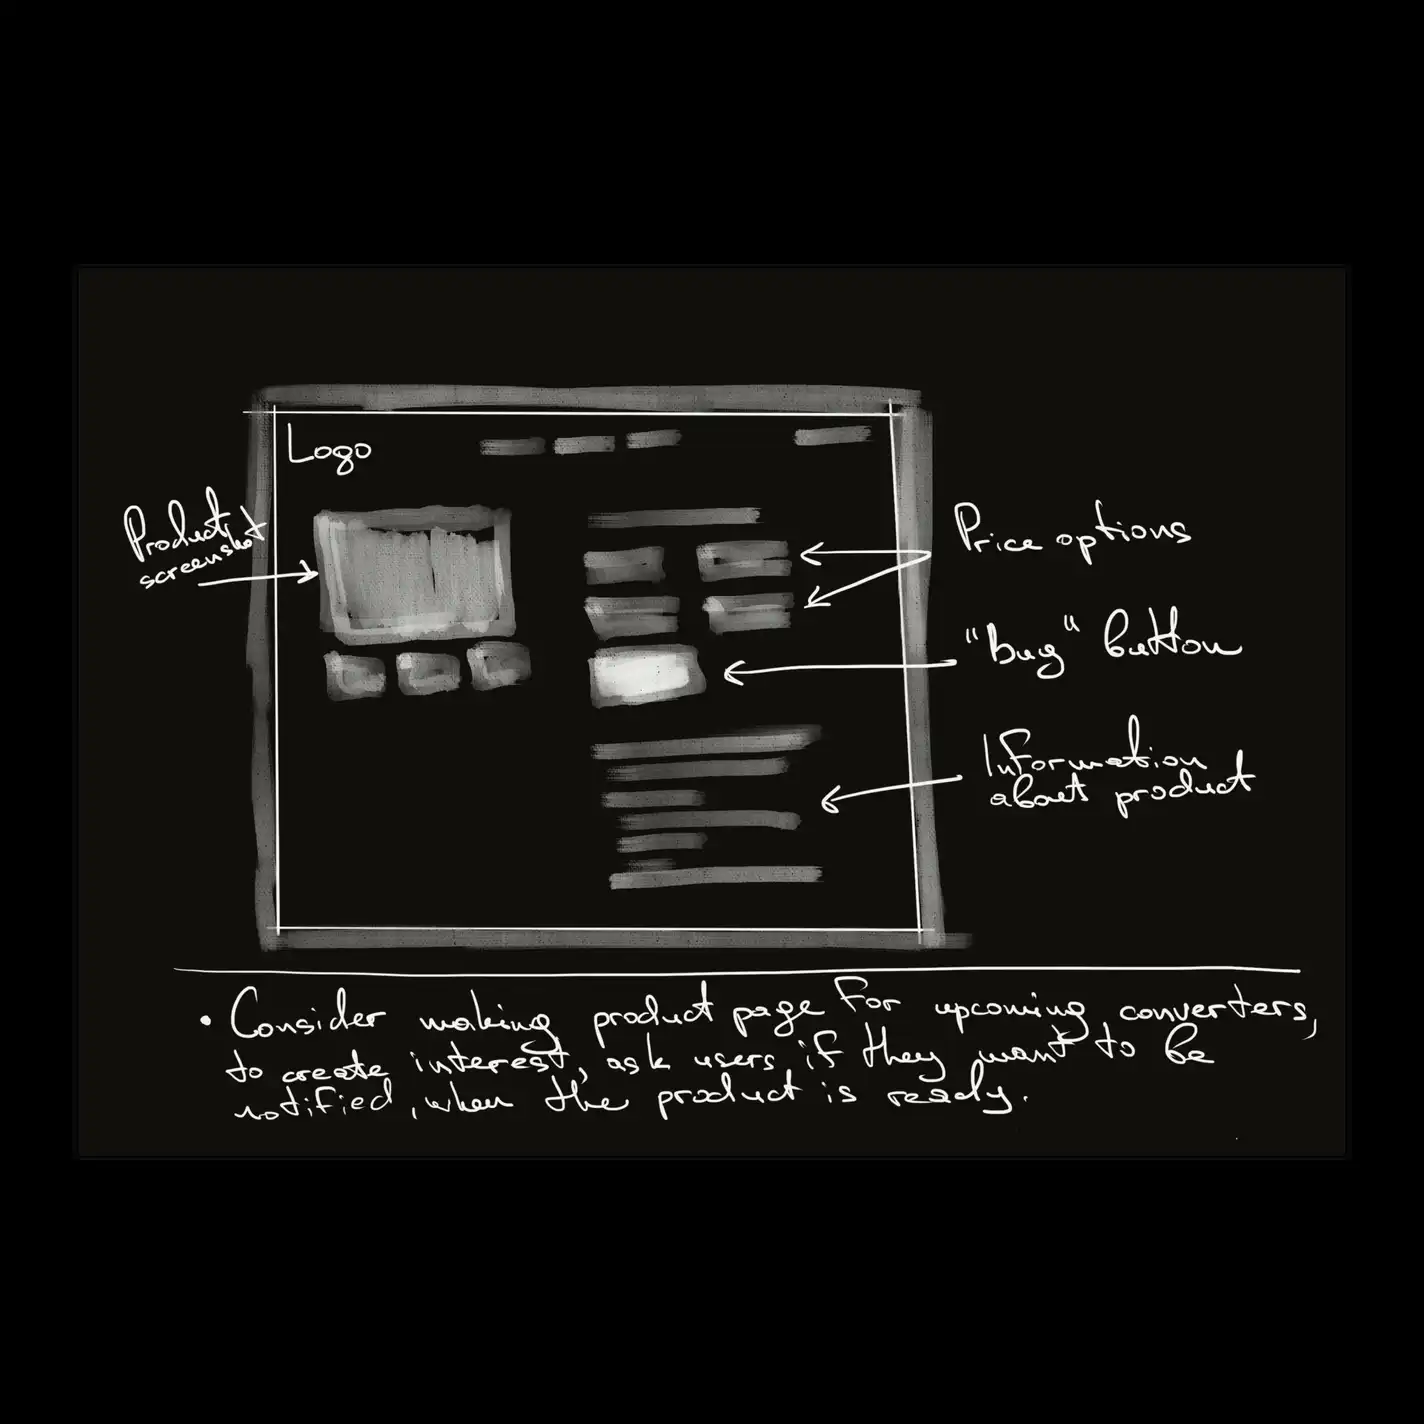 Logo
Product
screenshot
Price options
"buy" button
Information
about product
• Consider making product page for upcoming converters,
to create interest, ask users if they want to be
notified, when the product is ready.